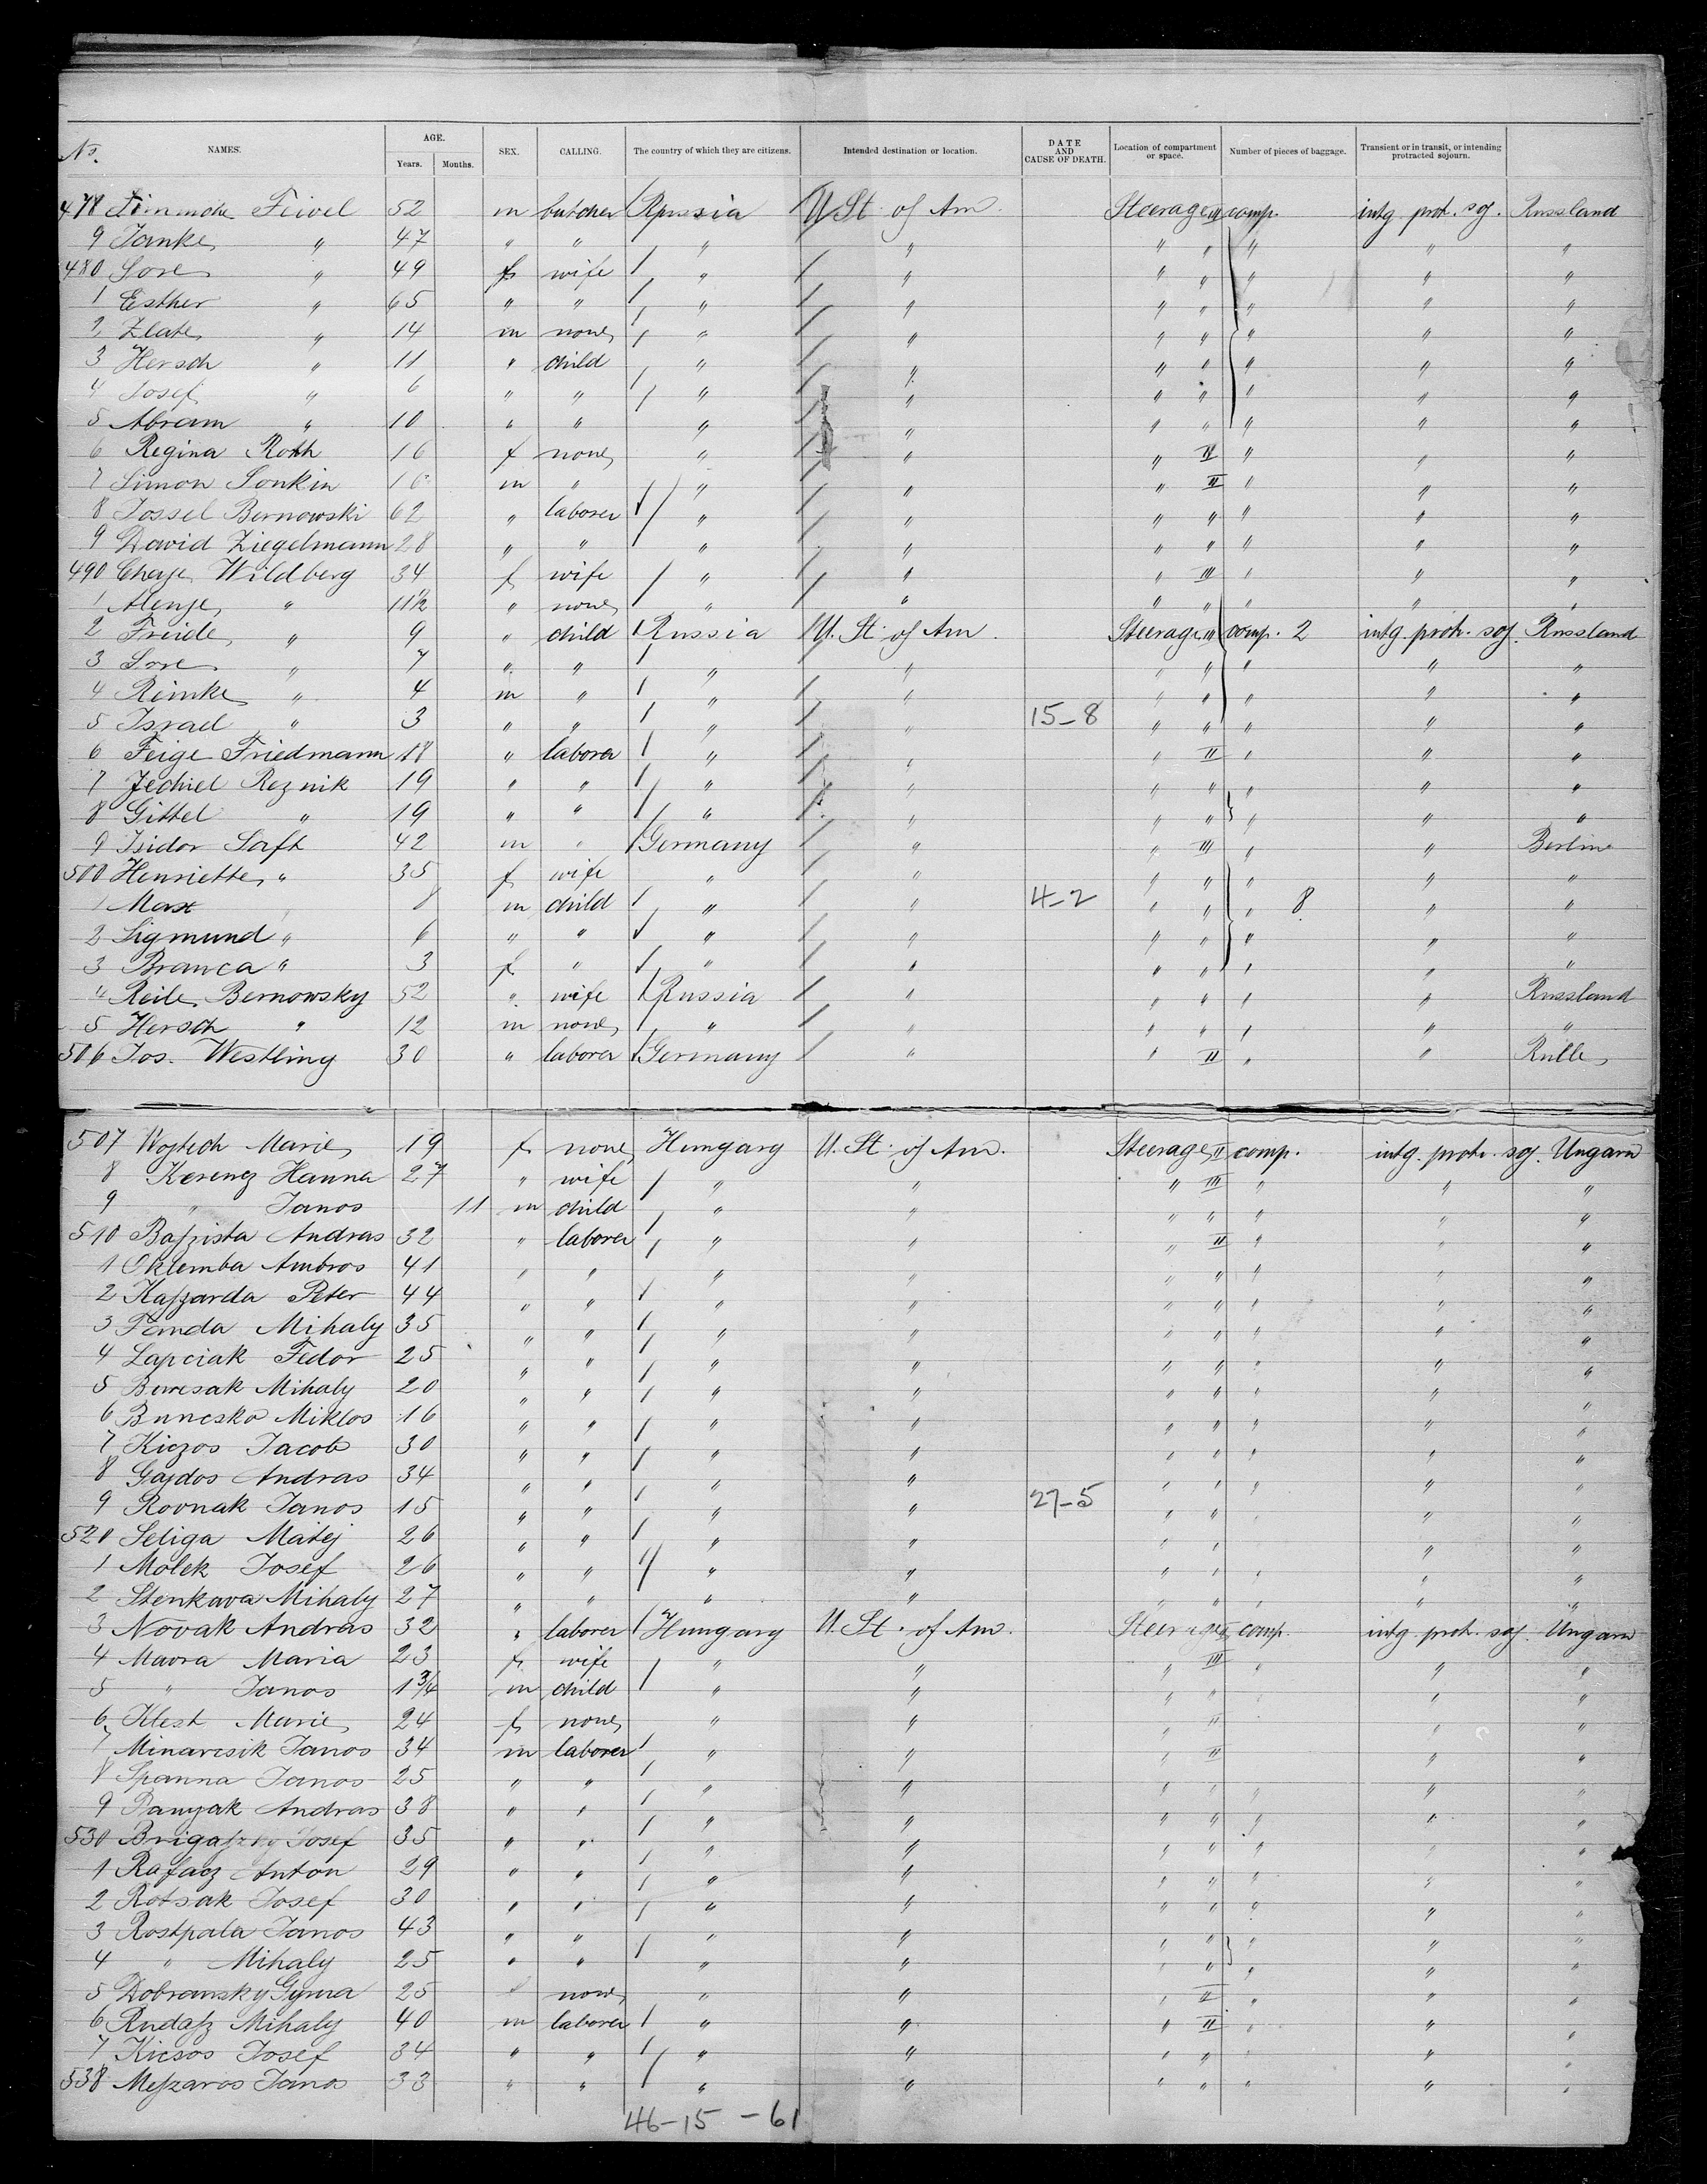 No. NAMES. AGE. Years. Months. SEX. CALLING. The country of which they are citizens. Intended destination or location. DATE AND CAUSE OF DEATH. Location of compartment or space. Number of pieces of baggage. Transient or in transit, or intending protracted sojourn.
478 Feivel 52 m butcher Russia U St. of Am. Steerage III comp. intg. prot. soj. Russland
9 Janke " 47 " " " " " " " " "
480 Sore " 49 f wife " " " " " " "
1 Esther " 65 " " " " " " " " "
2 Zlate " 14 m none " " " " " " "
3 Hersch " 11 " child " " " " " " "
4 Josef " 6 " " " " " " " " "
5 Abram " 10 " " " " " " " "
6 Regina Roth 16 f none " " " III " " "
7 Simon Sonkin 16 m " " " " II " " "
8 Jossel Bernowski 62 " laborer " " " " " " "
9 David Ziegelmann 28 " " " " " " " " "
490 Chaje Wildberg 34 f wife " " " III " " "
1 " 11½ " none " " " " " " "
2 Freide " 9 " child Russia U. St. of Am. Steerage III comp. 2 intg. prot. soj. Russland
3 Sore " 7 " " " " " " " " "
4 Reinke " 4 m " " " " " " " "
5 Israel " 3 " " " " 15-8 " " " " "
6 Feige Friedmann 18 " laborer " " " II " " "
7 Jechiel Reznik 19 " " " " " " " " "
8 Gittel " 19 " " " " " " " " "
9 Isidor Saft 42 m " Germany " " III " " Berlin
500 Henriette " 35 f wife " " " " " " "
1 Max 8 m child " " 4-2 " " " 8 " "
2 Sigmund " 6 " " " " " " " " "
3 Branca " 3 f " " " " " " " "
4 Reile Bernowsky 52 " wife Russia " " " " " Russland
5 Hersch " 12 m none " " " " " " "
506 Jos. Westling 30 " laborer Germany " " II " " Rulle
507 Wojtech Marie 19 f none Hungary U. St. of Am. Steerage II comp. intg. prot. soj. Ungarn
8 Kerencz Hanna 27 " wife " " " III " " "
9 " Janos 11 m child " " " " " " "
510 Baszista Andras 32 " laborer " " " II " " "
1 Oklemba Ambros 41 " " " " " " " " "
2 Kaszarda Peter 44 " " " " " " " " "
3 Fanda Mihaly 35 " " " " " " " " "
4 Lapciak Fedor 25 " " " " " " " " "
5 Mihaly 20 " " " " " " " " "
6 Buncsko Miklos 16 " " " " " " " " "
7 Kiczos Jacob 30 " " " " " " " " "
8 Gajdos Andras 34 " " " " " " " " "
9 Rovnak Janos 15 " " " " 27-5 " " " " "
520 Seliga Matej 26 " " " " " " " "
1 Molek Josef 26 " " " " " " " " "
2 Stenkava Mihaly 27 " " " " " " " " "
3 Novak Andras 32 " laborer Hungary U. St. of Am. Steerage II comp. intg. prot. soj. Ungarn
4 Mavra Maria 23 f wife " " " III " " "
5 " Janos 1¾ m child " " " " " "
6 Klest Marie 24 f none " " " II " "
7 Minarcsik Janos 34 m laborer " " " II " "
8 Spanna Janos 25 " " " " " " " " "
9 Banyak Andras 38 " " " " " " " " "
530 Josef 35 " " " " " " " " "
1 Rafacz Anton 29 " " " " " " " " "
2 Rotsak Josef 30 " " " " " " " " "
3 Rostpala Janos 43 " " " " " " " " "
4 " Mihaly 25 " " " " " " " " "
5 Dobransky 25 none " " " II " " "
6 Rudasz Mihaly 40 m laborer " " " II " " "
7 Kicsos Josef 34 " " " " " " " " "
538 Meszaros Janos 33 " " " " " " " " "
46-15 -61